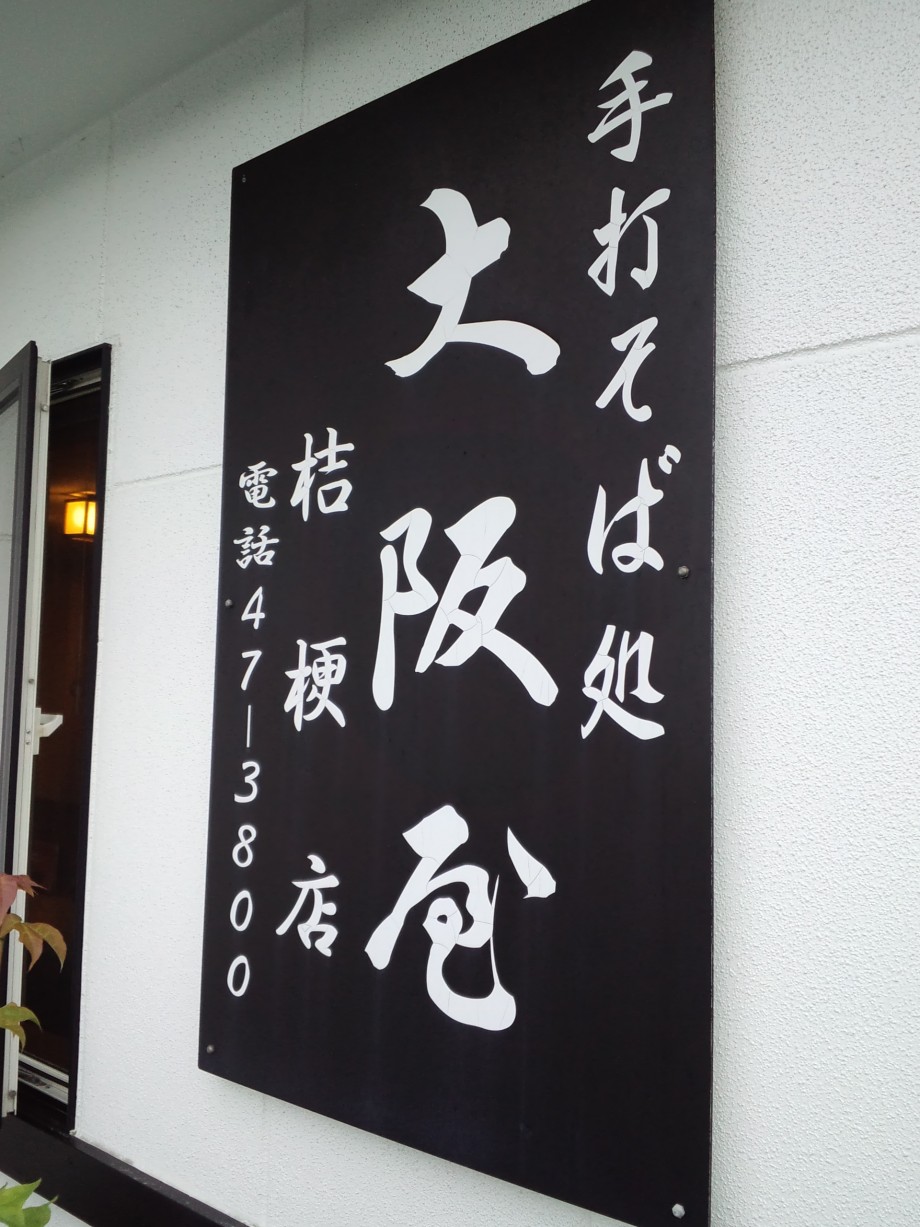 手打そば処
大阪屋
桔梗店
電話47-3800